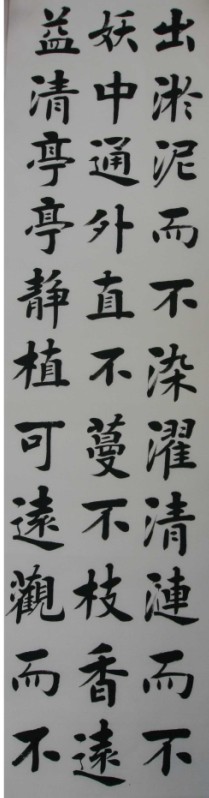 出淤泥而不染濯清漣而不
妖中通外直不蔓不枝香遠
益清亭亭静植可遠觀而不